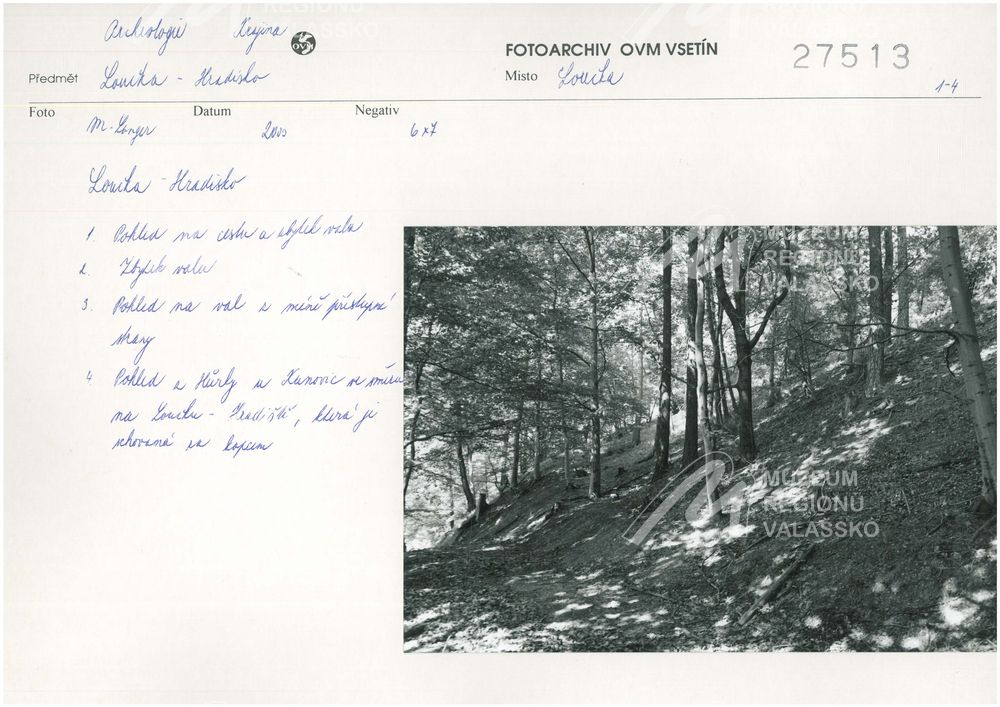 Archeologie Krajina OVM
FOTOARCHIV OVM VSETÍN 27513
Předmět Loučka - Hradisko Místo Loučka 1-4
Foto Datum Negativ
M. Langer 2000 6x7
Loučka - Hradisko
1. Pohled na cestu a zbytek valu
2. Zbytek valu
3. Pohled na val z méně přístupné
strany
4. Pohled z Hůrky u Kunovic ve směru
na Loučku - Hradiště, která je
schovaná za kopcem
MUZEUM
REGIONU
VALAŠSKO
MUZEUM
REGIONU
VALAŠSKO